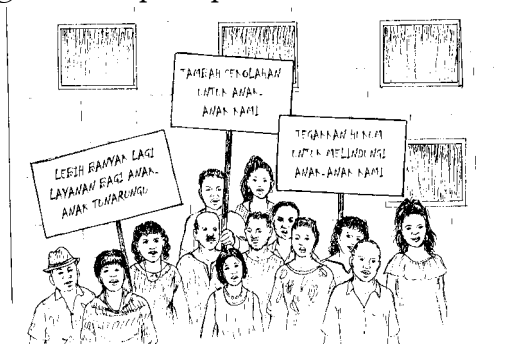 LEBIH BANYAK LAGI
LAYANAN BAGI ANAK-
ANAK TUNARUNGU
TAMBAH SEKOLAHAN
UNTUK ANAK-
ANAK KAMI
TEGAKKAN HUKUM
UNTUK MELINDUNGI
ANAK-ANAK KAMI